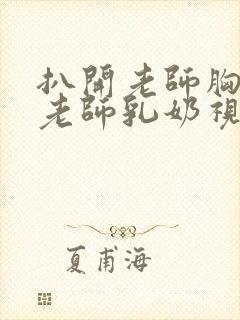 扒開老師胸
老師乳奶視
夏甫海